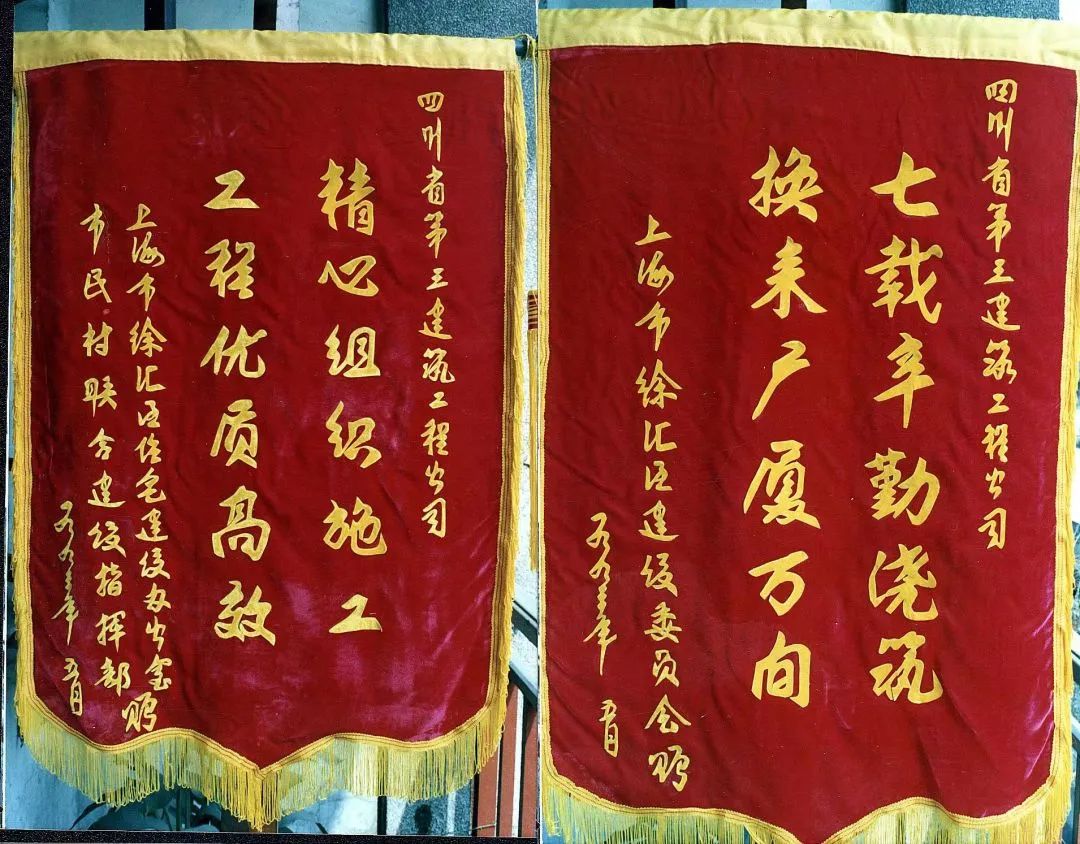 四川省第三建筑工程公司
精心组织施工
工程优质高效
上海市徐汇区住宅建设办公室
市民村联合建设指挥部 赠
五月
四川省第三建筑工程公司
七载辛勤浇筑
换来广厦万间
上海市徐汇区建设委员会赠
五月